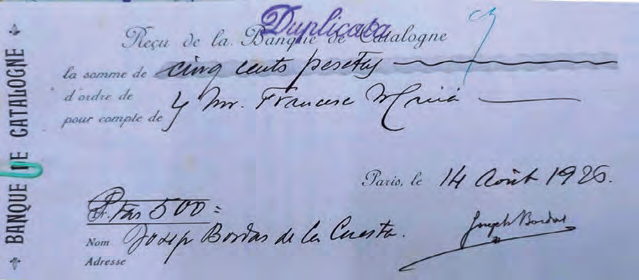 Duplicata
Reçu de la Banque de Catalogne
la somme de cinq cents pesetas
d'ordre de
pour compte de Mr. Francesc Macià
Paris, le 14 Août 1926.
Ptas 500=
Nom Josep Bordas de la Cuesta.
Adresse
Joseph Bordas
BANQUE DE CATALOGNE